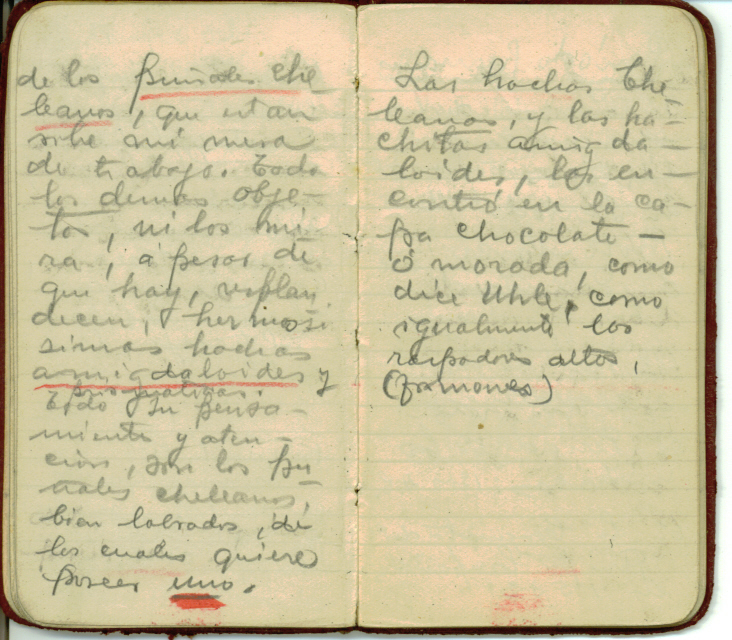 de los puñales che
leanos, que estan
sobre mi mesa
de trabajo. Todo
los demas obje-
tos, ni los mi
ra, á pesar de
que hay, resplan
decen, hermosi
simas hachas
amigdaloides y
Todo su pensa-
miento y aten-
cion, son los pu
ñales cheleanos
bien labrados, de
los cuales quiere
poseer uno.
Las hachas Che-
leanas, y las ha-
chitas amigda-
loides, las en-
contró en la ca-
pa chocolate -
ó morada, como
dice Uhle, como
igualmente los
raspadores altos,